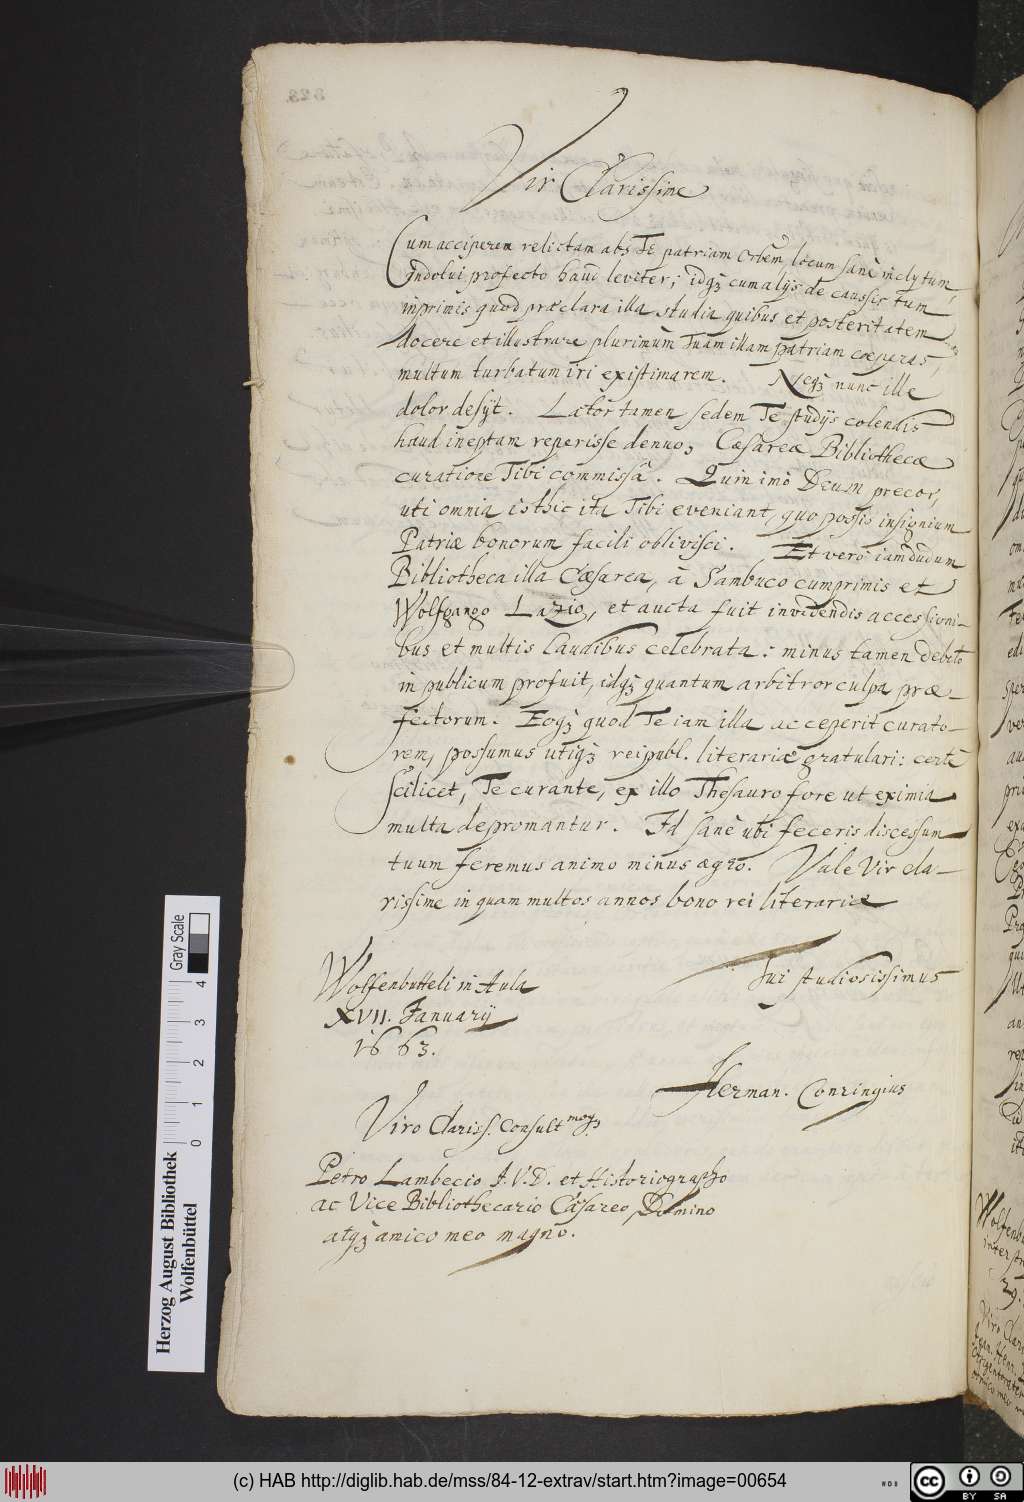 Vir Clarissime
Cum acciperem relictam abs Te patriam Urbem, locum sanè inclytum,
indolui profecto haud leviter; idq; cum alijs de caussis tum
inprimis quod præclara illa studia quibus et posteritatem
docere et illustrare plurimùm Tuam illam patriam cœperas,
multum turbatum iri existimarem. Neq; nunc ille
dolor desijt. Lætor tamen sedem Te studijs colendis
haud ineptam reperisse denuo, Cæsareæ Bibliothecæ
curatione Tibi commissâ. Quin imò Deum precor,
uti omnia isthic ita Tibi eveniant, quo possis insignium
Patriæ bonorum facili oblivisci. Et verò iamdudum
Bibliotheca illa Cæsarea, à Sambuco cumprimis et
Wolfgango Lazio, et aucta fuit invidendis accessioni-
bus et multis laudibus celebrata: minus tamen debito
in publicum profuit, idq; quantum arbitror culpa præ-
fectorum. Eoq; quod Te iam illa acceperit curato-
rem, possumus utiq; reipubl. literariæ gratulari: certè
scilicet, Te curante, ex illo Thesauro fore ut eximia
multa depromantur. Id sanè ubi feceris discessum
tuum feremus animo minus ægro. Vale Vir cla-
rissime in quam multos annos bono rei literariæ
Tui studiosissimus
Wolfenbutteli in Aula
XVII. Januarij
1663.
Herman. Conringius
Viro Clariss. Consultmoq;
Petro Lambecio J.V.D. et Historiographo
ac Vice Bibliothecario Cæsareo, Domino
atq; amico meo magno.
Herzog August Bibliothek
Wolfenbüttel
Gray Scale
0 1 2 3 4
(c) HAB http://diglib.hab.de/mss/84-12-extrav/start.htm?image=00654
cc BY SA